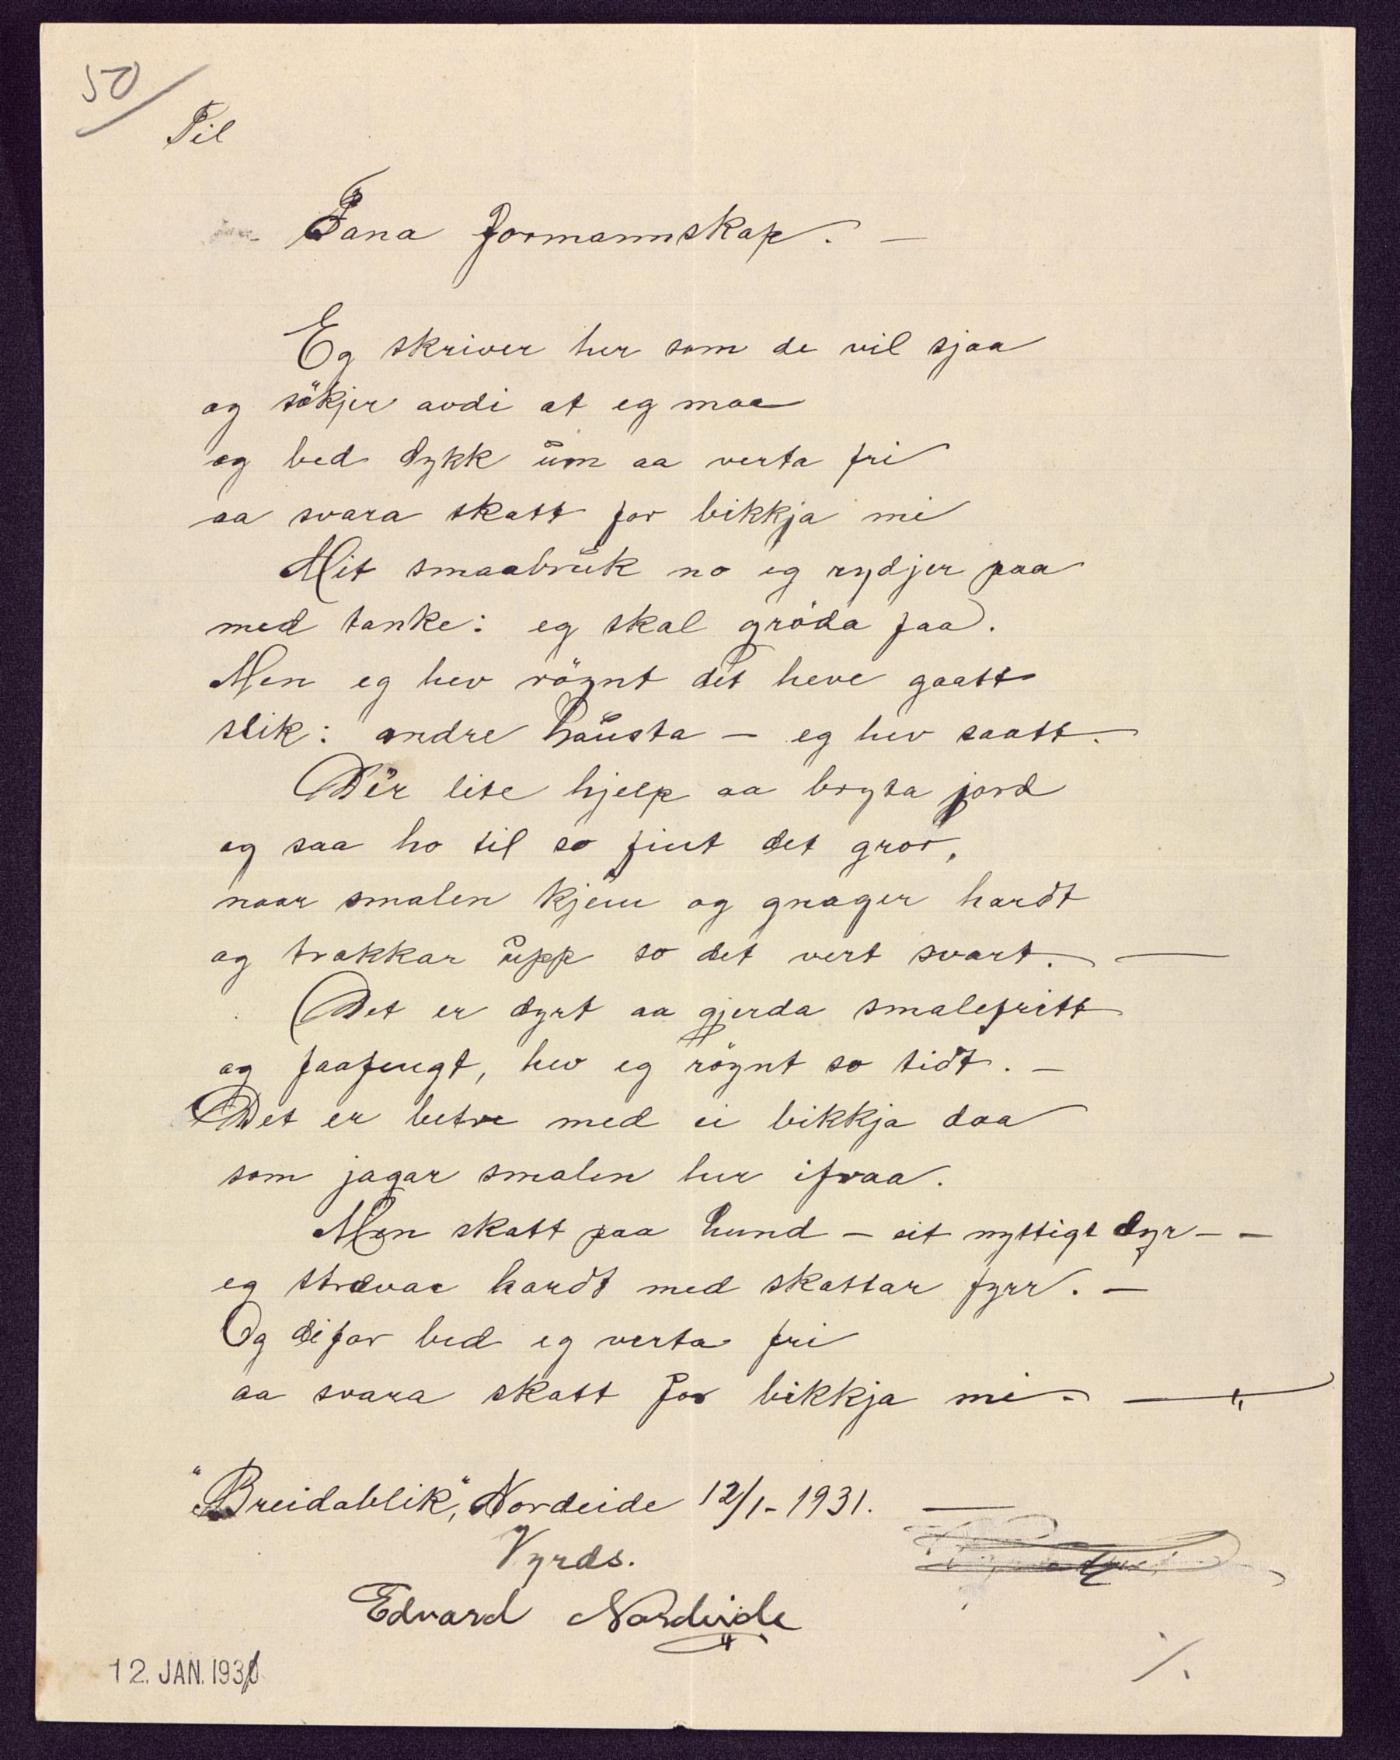 50/
Til
Fana formannskap. —
Eg skriver her som de vil sjaa
og sökjer avdi at eg maa
og bed dykk um aa verta fri
aa svara skatt for bikkja mi
Mit smaabruk no eg rydjer paa
med tanke: eg skal gröda faa.
Men eg hev röynt det heve gaatt
slik: andre hausta — eg hev saatt.
D'er lite hjelp aa bryta jord
og saa ho til so fint det gror,
naar smalen kjem og gnager hardt
og trakkar upp so det vert svart. —
Det er dyrt aa gjerda smalefritt
og faafengt, hev eg röynt so tidt. —
Det er betre med ei bikkja daa
som jagar smalen her ifraa.
Men skatt paa hund — eit nyttigt dyr — —
eg strævar hardt med skattar fyrr. —
Og difor bed eg verta fri
aa svara skatt for bikkja mi. —
"Breidablik", Nordeide 12/1 - 1931. —
Vyrds.
Edvard Nordeide
12. JAN. 1931